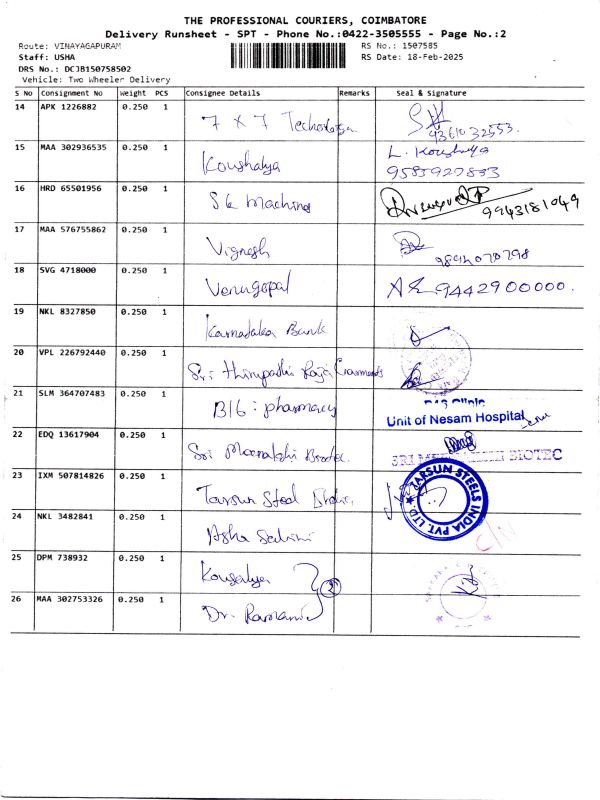 THE PROFESSIONAL COURIERS, COIMBATORE
Delivery Runsheet - SPT - Phone No.:0422-3505555 - Page No.:2
Route: VINAYAGAPURAM
RS No.: 1507585
Staff: USHA
RS Date: 18-Feb-2025
DRS No.: DCJB150758502
Vehicle: Two Wheeler Delivery
S No Consignment No Weight PCS Consignee Details Remarks Seal & Signature
14 APK 1226882 0.250 1 7 x 7
9361032553.
15 MAA 302936535 0.250 1 Koushalya L. Koushalya
9585927833
16 HRD 65501956 0.250 1 SK Machine 9943181049
17 MAA 576755862 0.250 1 Vignesh 9894070798
18 SVG 4718000 0.250 1 Venugopal 9442900000.
19 NKL 8327850 0.250 1 Karnataka Bank
20 VPL 226792440 0.250 1 Sri thirupathi Raja Garments
21 SLM 364707483 0.250 1 B16: pharmacy Clinic
Unit of Nesam Hospital
22 EDQ 13617904 0.250 1 Sri Meenakshi SRI MEENAKSHI BIOTEC
23 IXM 507814826 0.250 1 Tarsun Steel India TARSUN STEELS INDIA PVT. LTD.
24 NKL 3482841 0.250 1 Asha
25 DPM 738932 0.250 1 Kousalya
2
26 MAA 302753326 0.250 1 Dr. Ramani